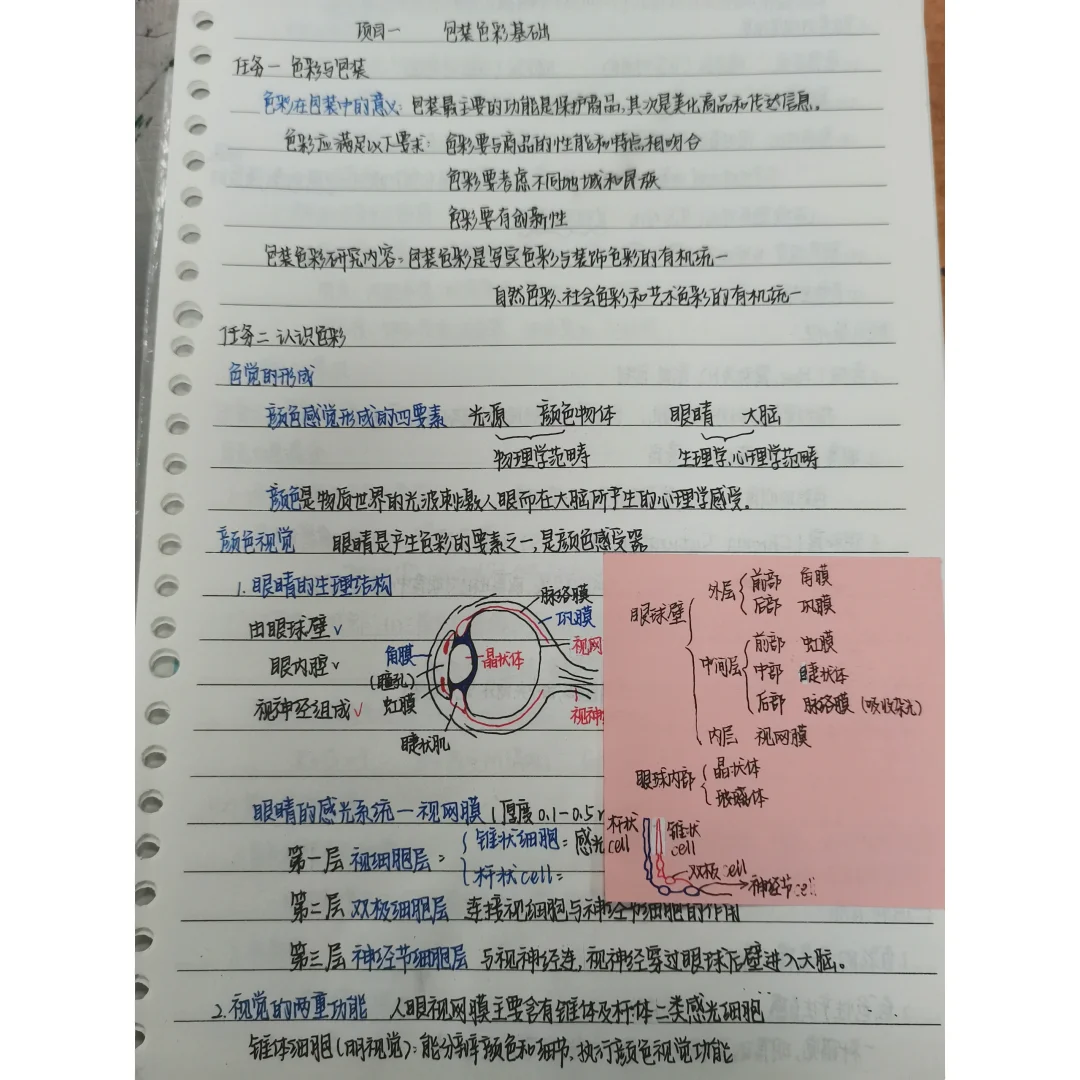 项目一 包装色彩基础
任务一 色彩与包装
色彩在包装中的意义：包装最主要的功能是保护商品，其次是美化商品和传达信息。
色彩应满足以下要求：色彩要与商品的性能和特点相吻合
色彩要考虑不同地域和民族
色彩要有创新性
包装色彩研究内容：包装色彩是写实色彩与装饰色彩的有机统一
自然色彩、社会色彩和艺术色彩的有机统一
任务二 认识色彩
色觉的形成
颜色感觉形成的四要素 光源 颜色物体 眼睛 大脑
物理学范畴 生理学，心理学范畴
颜色是物质世界的光波刺激人眼而在大脑所产生的心理学感受。
颜色视觉 眼睛是产生色彩的要素之一，是颜色感受器
1.眼睛的生理结构
由眼球壁√
眼内腔√
视神经组成√
脉络膜
巩膜
视网
角膜
晶状体
(瞳孔)
虹膜
视神
睫状肌
眼球壁
外层 前部 角膜
后部 巩膜
中间层 前部 虹膜
中部 睫状体
后部 脉络膜(吸收杂光)
内层 视网膜
眼球内部 晶状体
玻璃体
杆状cell
锥状cell
双极cell
神经节cell
眼睛的感光系统—视网膜(厚度0.1-0.5
第一层 视细胞层： 锥状细胞：感光
杆状cell：
第二层 双极细胞层 连接视细胞与神经节细胞的作用
第三层 神经节细胞层 与视神经连，视神经穿过眼球后壁进入大脑。
2.视觉的两重功能 人眼视网膜主要含有锥体及杆体二类感光细胞
锥体细胞(明视觉)：能分辨颜色和细节，执行颜色视觉功能